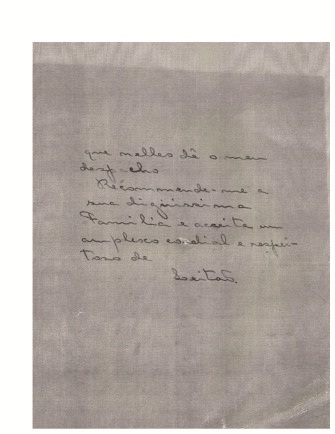 que nelles dê o meu
despacho
Recommende-me a
sua digníssima
Familia e aceite um
amplexo cordial e respei-
toso de
Leitão.